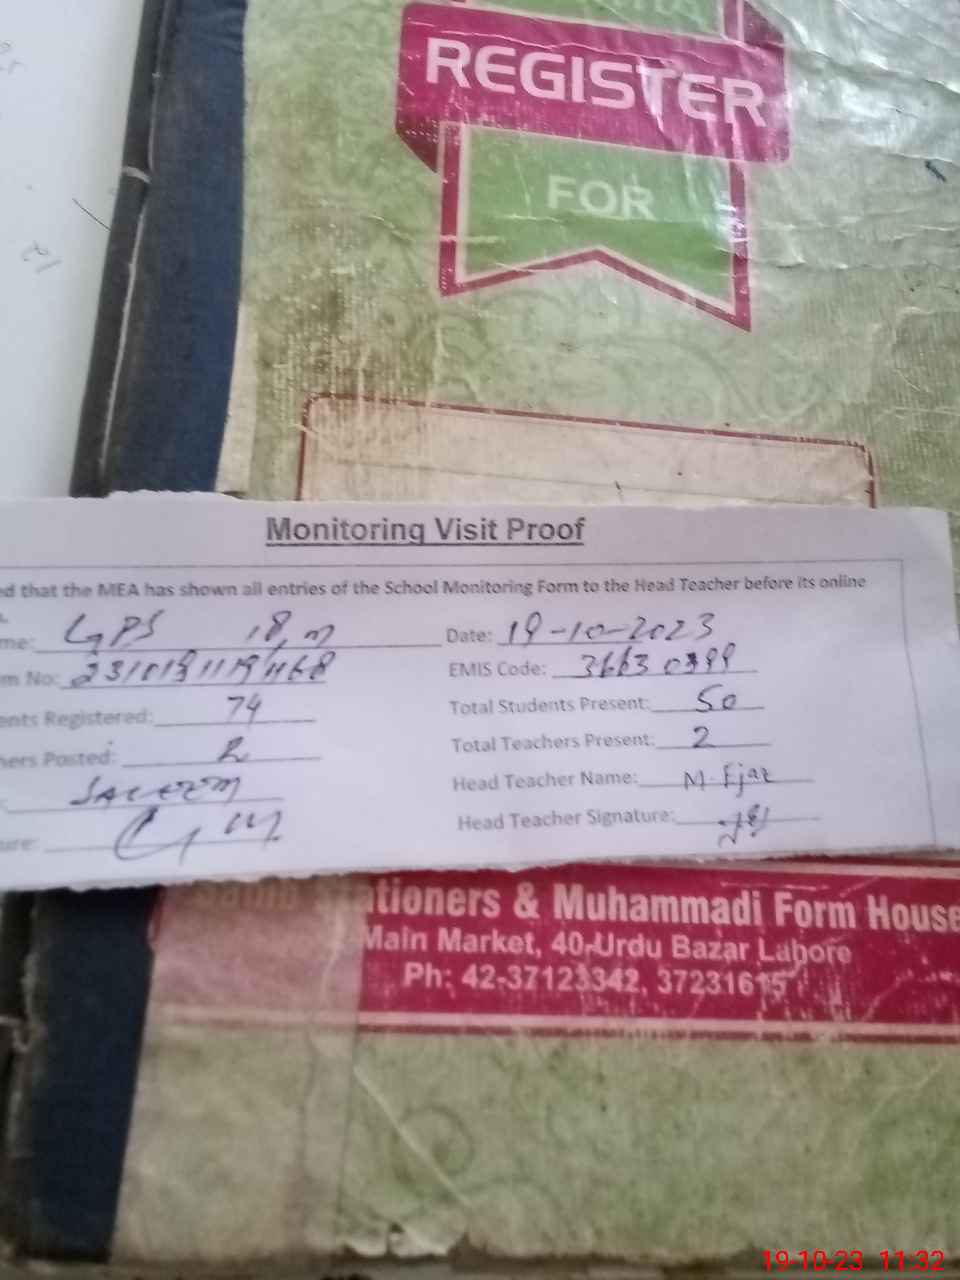 REGISTER
FOR
Monitoring Visit Proof
ed that the MEA has shown all entries of the School Monitoring Form to the Head Teacher before its online
me: GPS 18, m Date: 19-10-2023
m No: EMIS Code:
ents Registered: 74 Total Students Present: 50
hers Posted: 2 Total Teachers Present: 2
SALEEM Head Teacher Name: M. Ejaz
ure: Head Teacher Signature:
ationers & Muhammadi Form House
Main Market, 40-Urdu Bazar Lahore
Ph: 42-37123342, 37231615
19-10-23 11:32